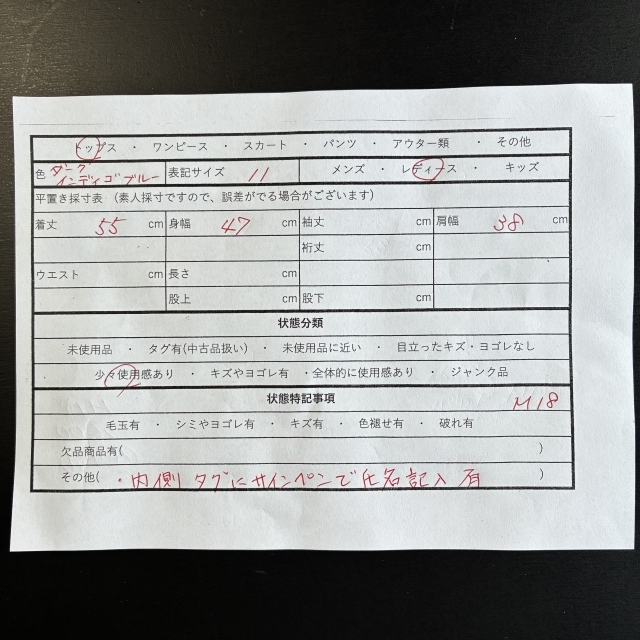 トップス ・ ワンピース ・ スカート ・ パンツ ・ アウター類 ・ その他
色 ダーク インディゴブルー 表記サイズ 11 メンズ ・ レディース ・ キッズ
平置き採寸表 (素人採寸ですので、誤差がでる場合がございます)
着丈 55 cm 身幅 47 cm 袖丈 cm 肩幅 38 cm
裄丈 cm
ウエスト cm 長さ cm
股上 cm 股下 cm
状態分類
未使用品 ・ タグ有(中古品扱い) ・ 未使用品に近い ・ 目立ったキズ・ヨゴレなし
・ 少々使用感あり ・ キズやヨゴレ有 ・全体的に使用感あり ・ ジャンク品
状態特記事項 M18
毛玉有 ・ シミやヨゴレ有 ・ キズ有 ・ 色褪せ有 ・ 破れ有
欠品商品有( )
その他( ・内側タグにサインペンで氏名記入有 )